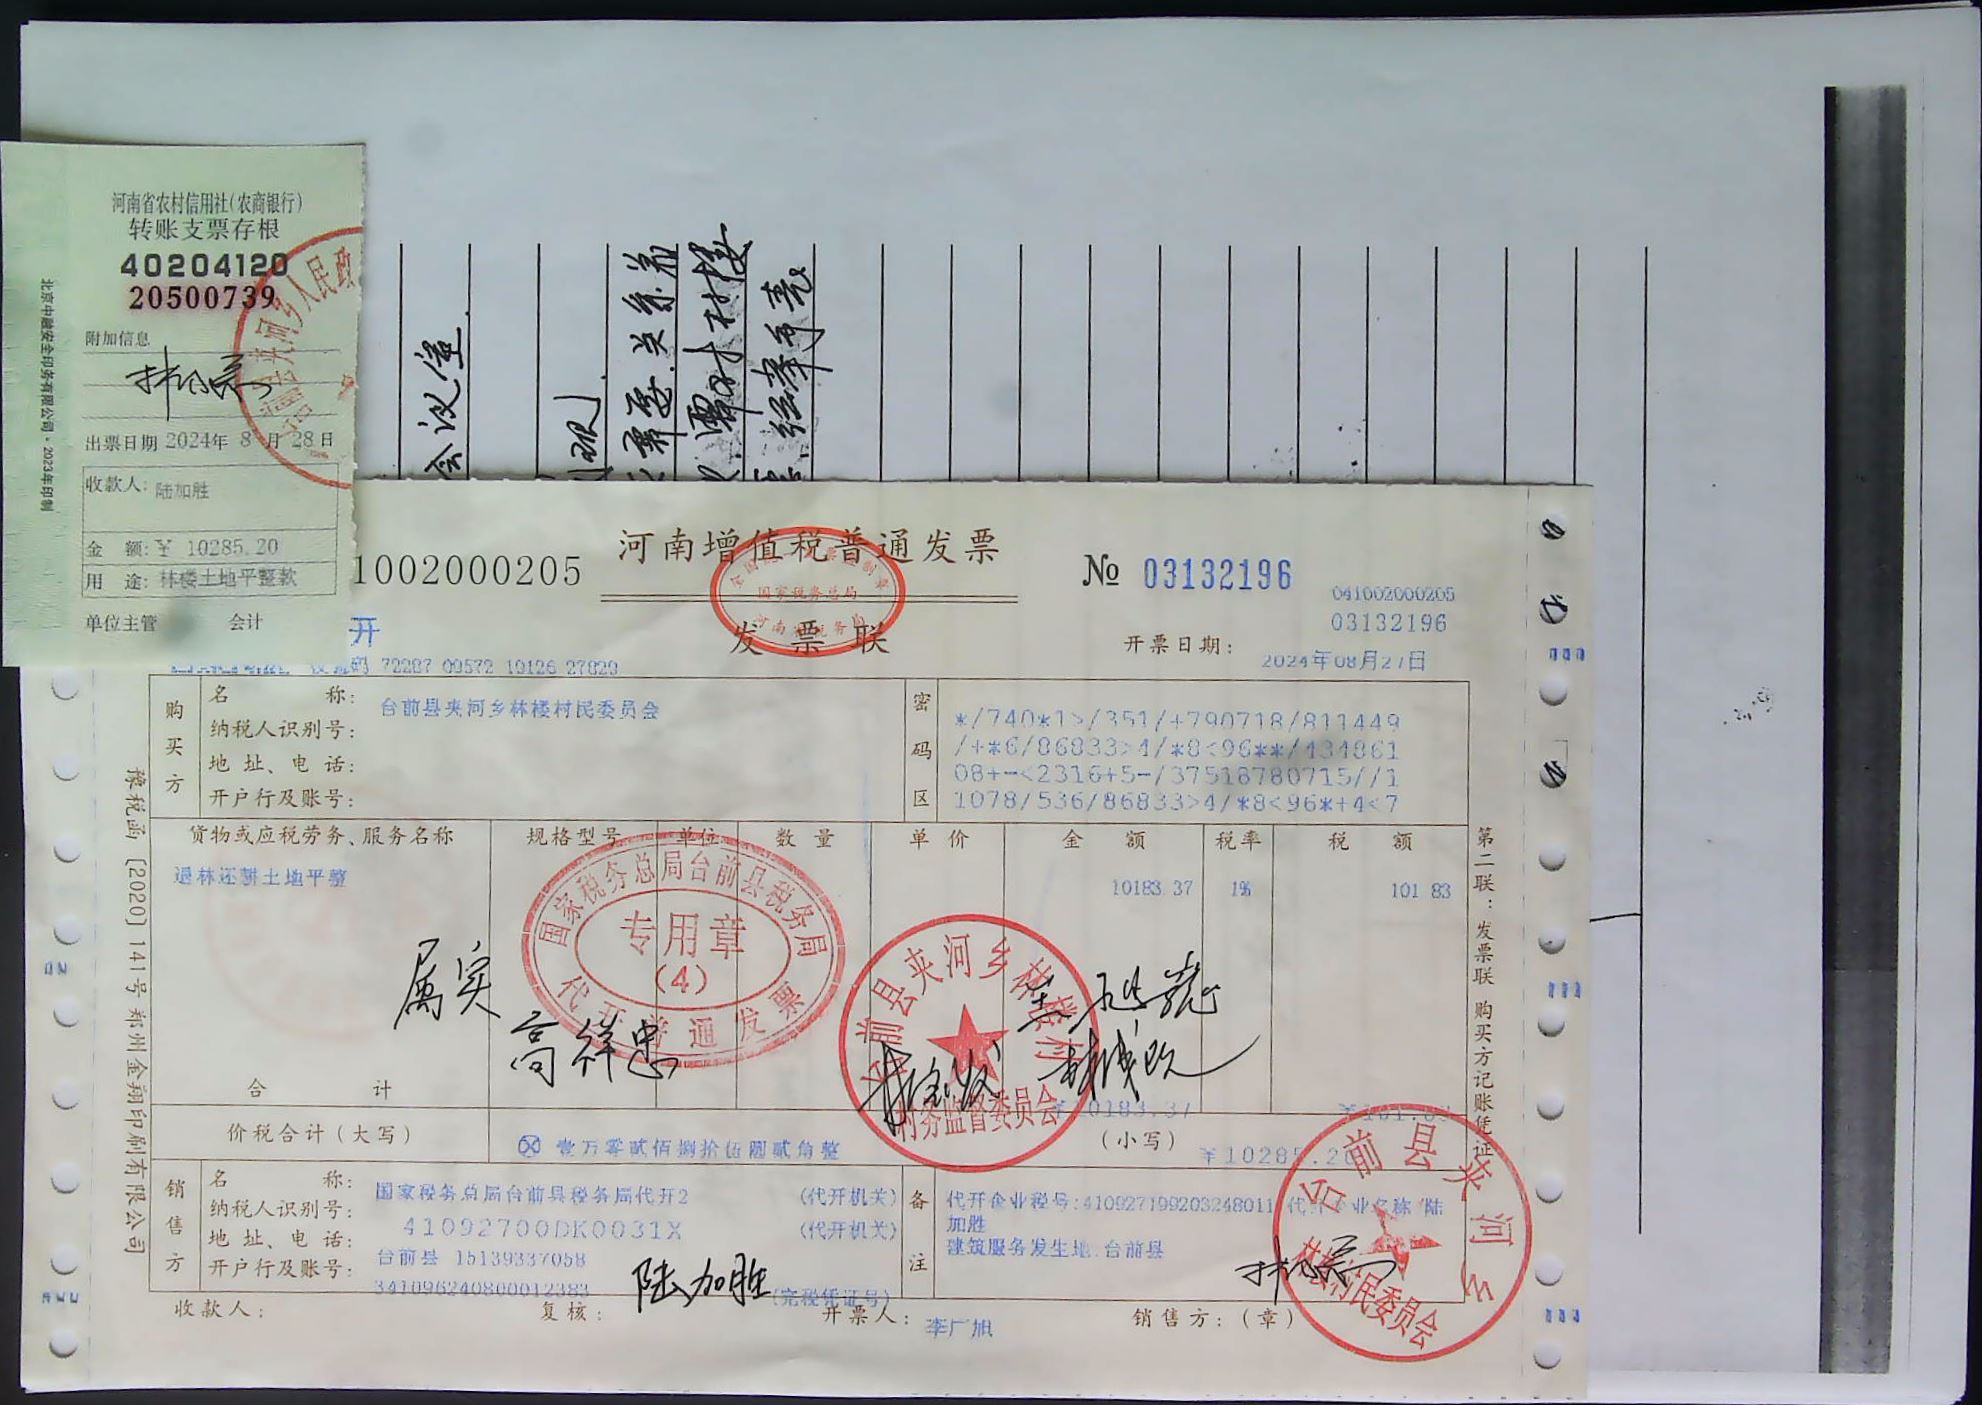 河南省农村信用社(农商银行)
转账支票存根
40204120
20500739
附加信息
出票日期 2024年 8 月 28 日
收款人: 陆加胜
金 额: ¥ 10285.20
用 途: 林楼土地平整款
单位主管 会计
北京中融安全印务有限公司·2023年印制
会议室
1002000205
河南增值税普通发票
发票联
国家税务总局
№ 03132196
041002000205
03132196
开票日期: 2024年08月27日
开
72287 09572 10126 27829
购买方
名 称: 台前县夹河乡林楼村民委员会
纳税人识别号:
地 址、电 话:
开户行及账号:
密码区
*/740*1>/351/+790718/811449
/+*6/86833>4/*8<96**/434861
08+-<2316+5-/37518780715//1
1078/536/86833>4/*8<96*+4<7
货物或应税劳务、服务名称 规格型号 单位 数 量 单 价 金 额 税率 税 额
退林还耕土地平整 10183.37 1% 101.83
国家税务总局台前县税务局
专用章
(4)
代开普通发票
属实
高祥忠
村务监督委员会
合 计 ¥10183.37 ¥101.83
价税合计(大写) ⊗ 壹万零贰佰捌拾伍圆贰角整 (小写) ¥10285.20
销售方
名 称: 国家税务总局台前县税务局代开2 (代开机关)
纳税人识别号: 41092700DK0031X (代开机关)
地 址、电 话: 台前县 15139337058
开户行及账号: 341096240800012383 (完税凭证号)
备注
代开企业税号:410927199203248011 代开企业名称:陆
加胜
建筑服务发生地:台前县
陆加胜
台前县夹河乡
林楼村民委员会
收款人: 复核: 开票人: 李广旭 销售方:(章)
第二联:发票联 购买方记账凭证
豫税函〔2020〕141号郑州金翔印刷有限公司